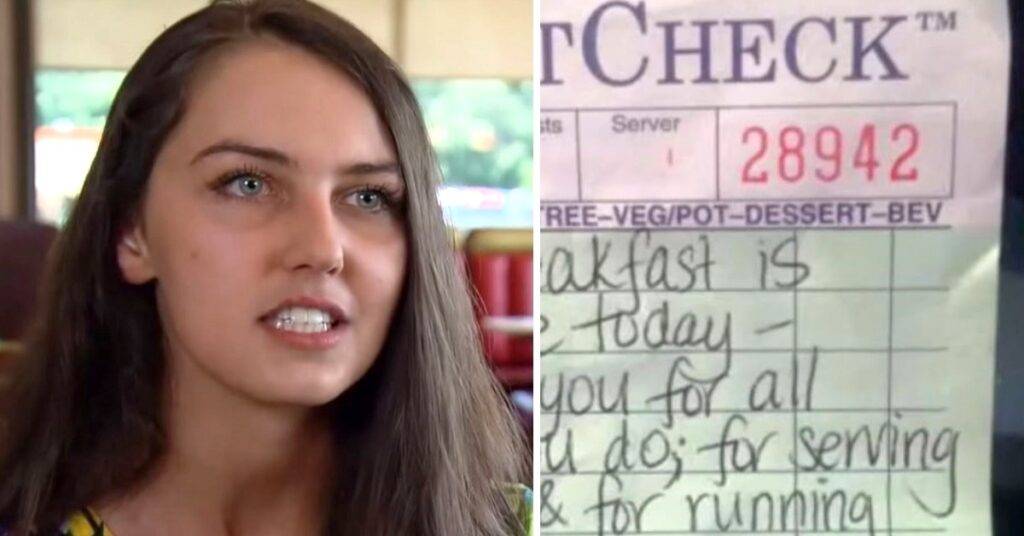 TCHECK™
sts Server
28942
TREE–VEG/POT–DESSERT–BEV
akfast is
e today –
you for all
u do; for serving
& for running